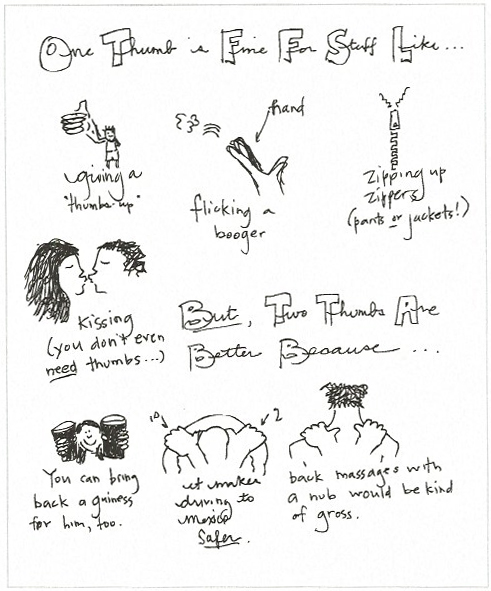 One Thumb is Fine For Stuff Like...
giving a
"thumbs-up"
hand
flicking a
booger
zipping up
zippers
(pants or jackets!)
kissing
(you don't even
need thumbs...)
But, Two Thumbs Are
Better Because...
You can bring
back a guiness
for him, too.
1
2
it makes
driving to
Mexico
safer.
back massages with
a nub would be kind
of gross.